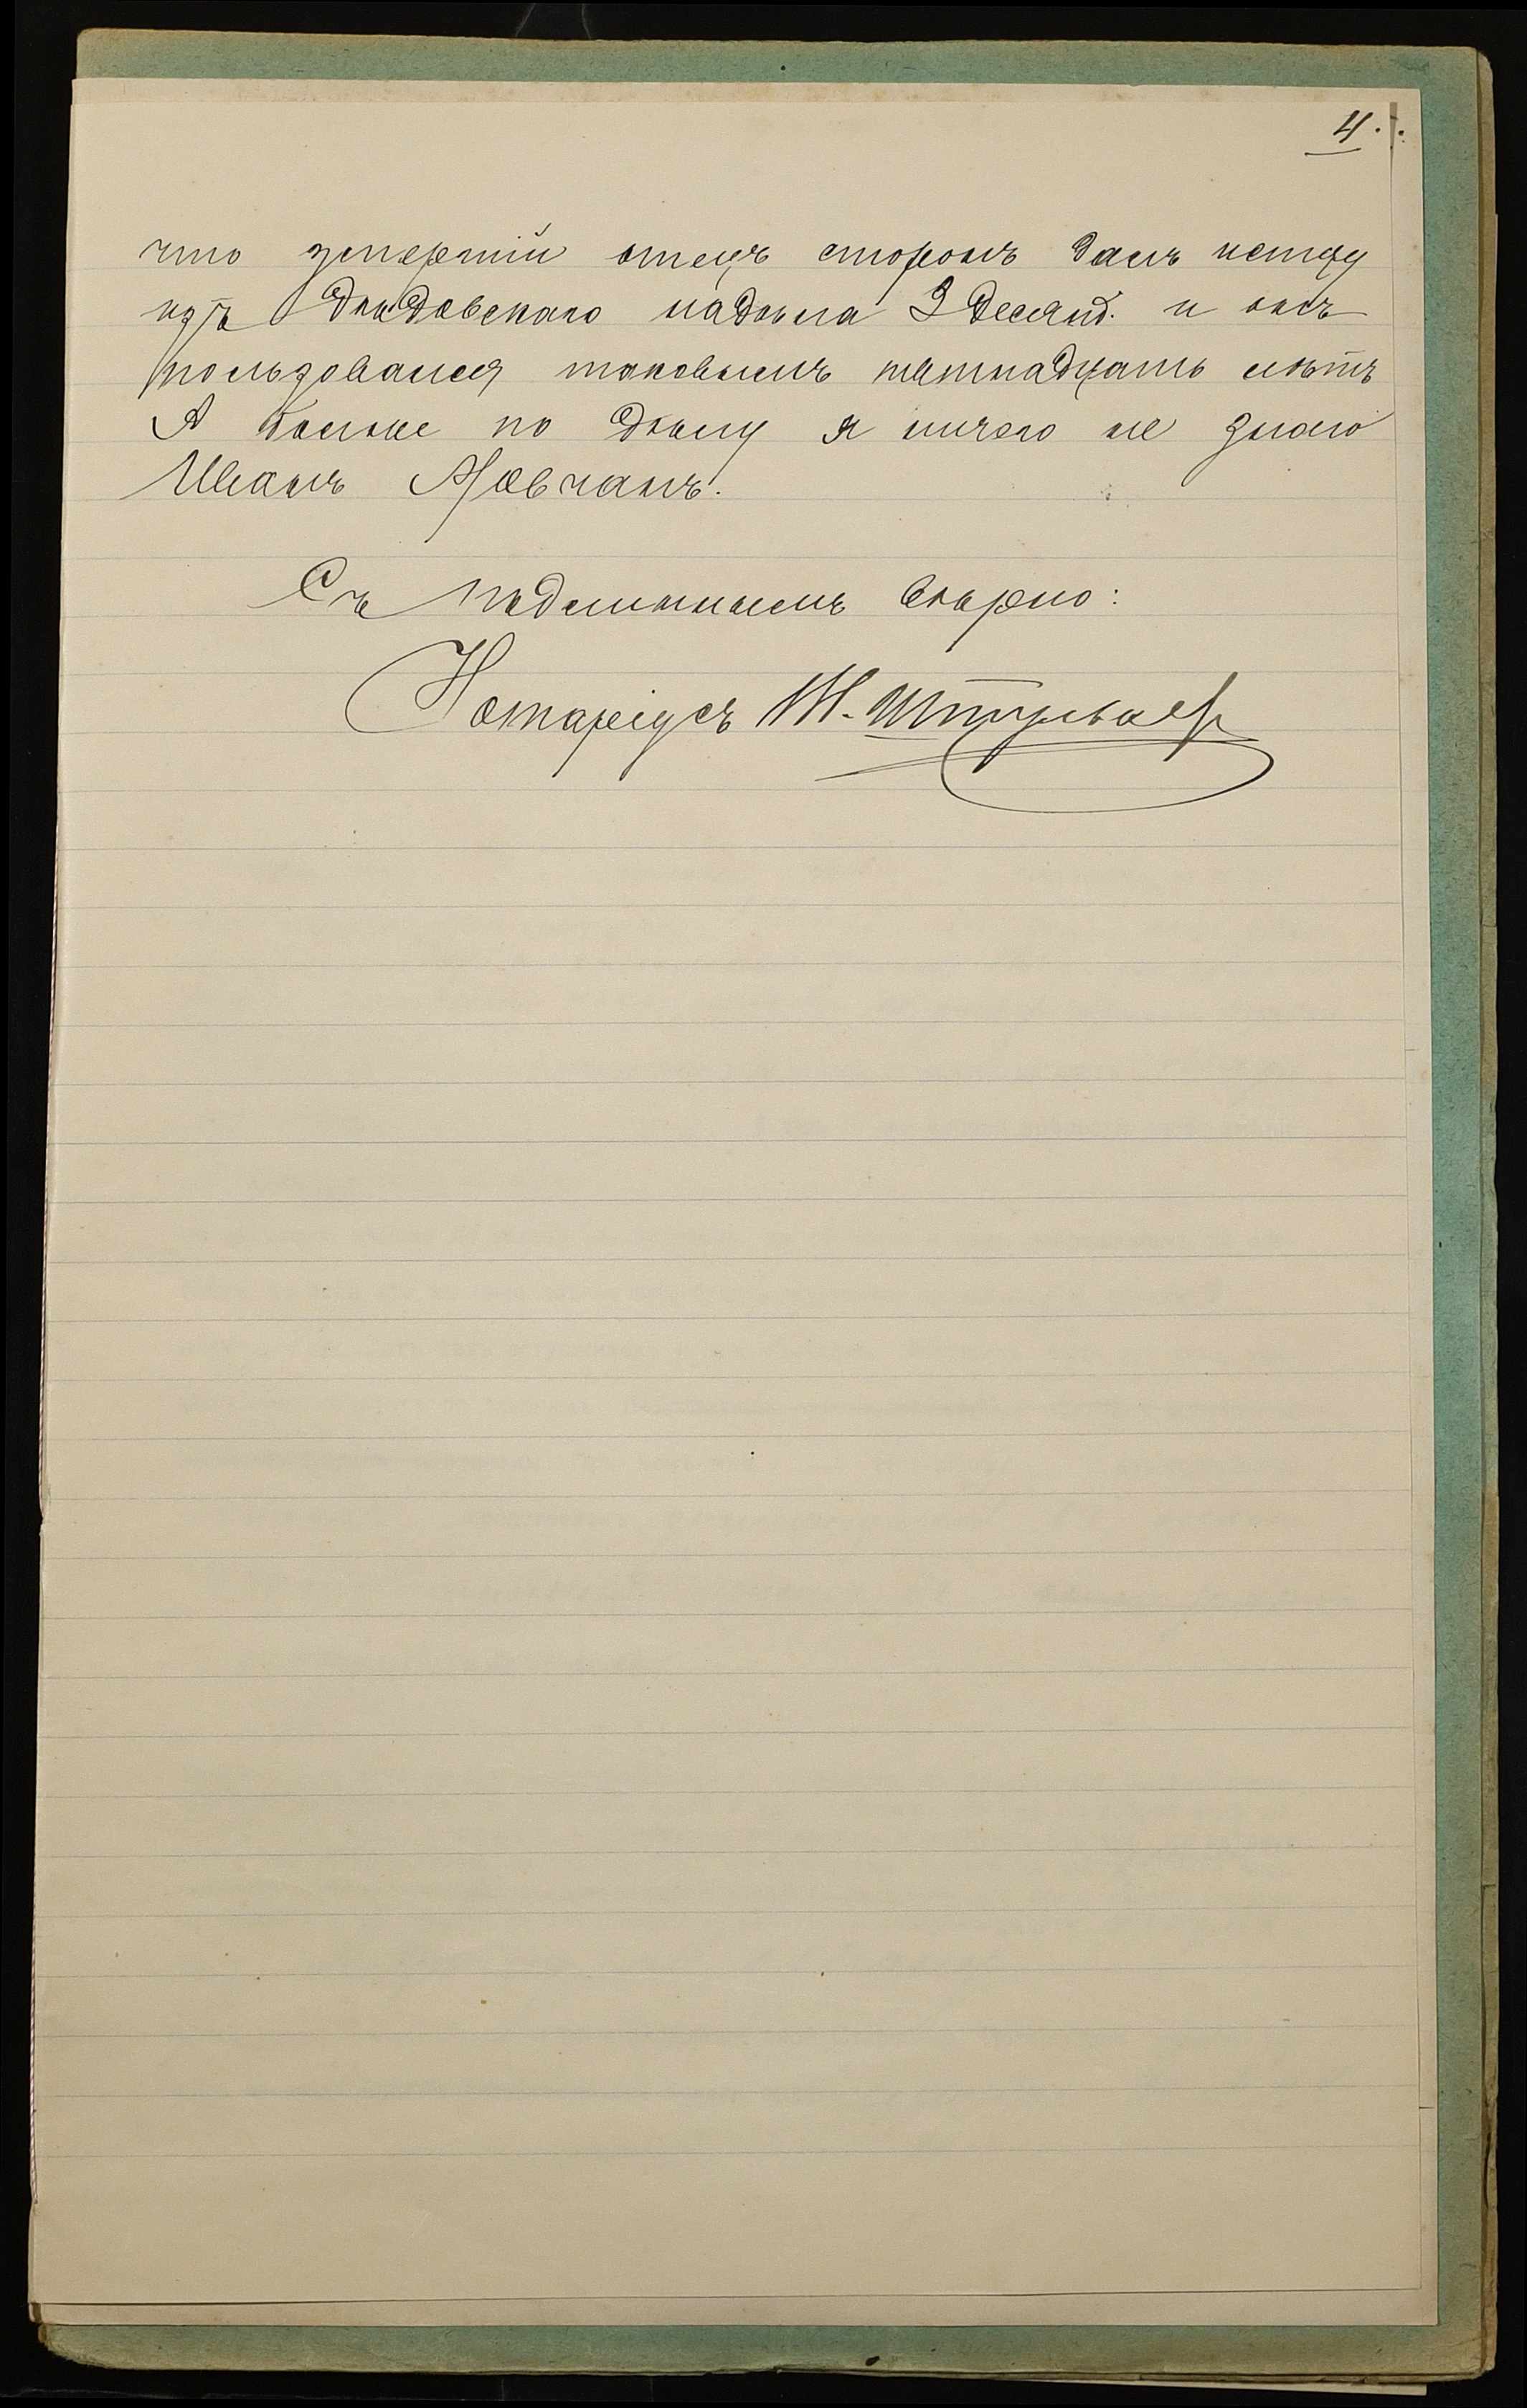 4.
что умершій отецъ сторонъ далъ истцу
изъ дѣдовскаго надѣла 3 десят. и онъ
пользовался таковымъ пятнадцать лѣтъ
А больше по дѣлу я ничего не знаю
Иванъ Мовчанъ.
Съ подлиннымъ вѣрно:
Нотаріусъ